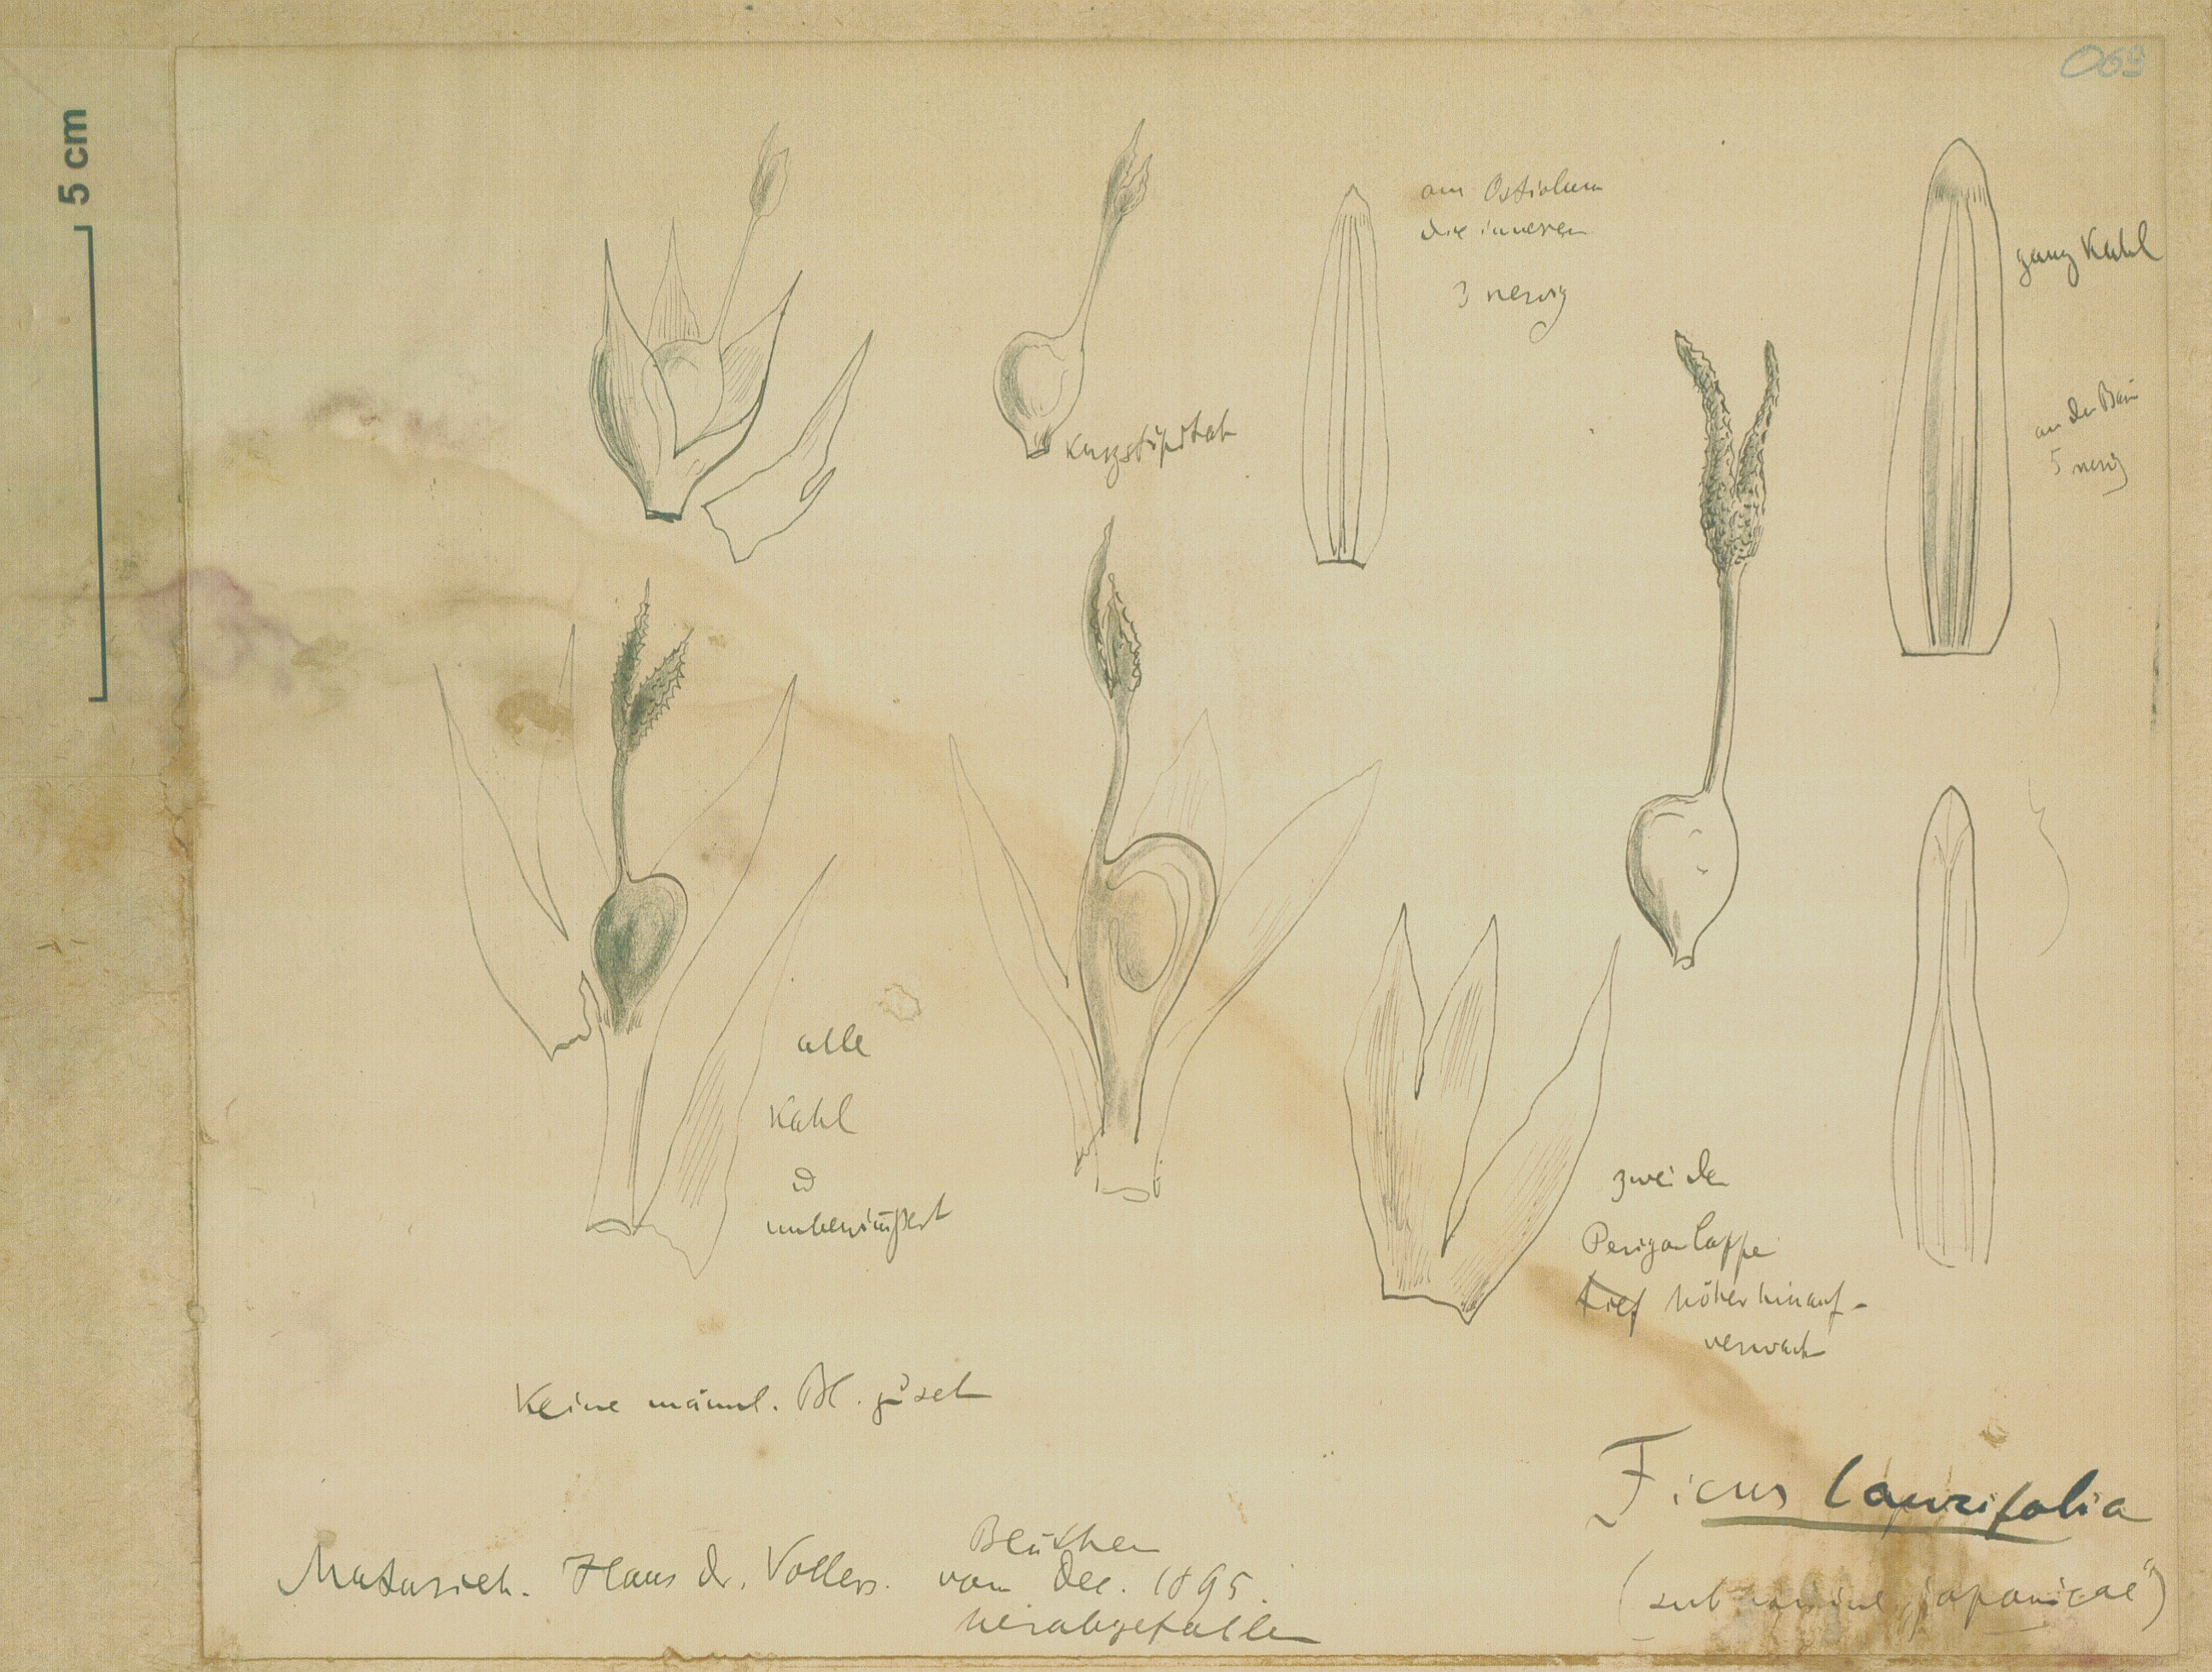 069
5 cm
am Ostiolum
die inneren
3 nervig
ganz kahl
an der Basi
5 nervig
kurzstipitat
alle
kahl
unbewimpert
zwei der
Perigonlappe
tief höher hinauf-
verwach
Keine männl. Bl. gesch
Blüthen
Matarieh. Haus Dr. Vollers. vom Dec. 1895.
herabgefallen
Ficus laurifolia
(sub nomine „japonicae")